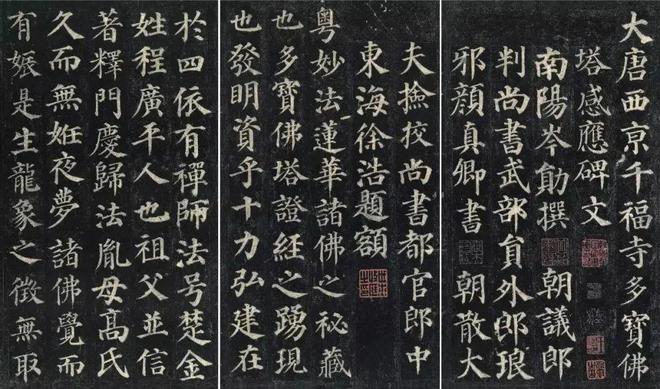 大唐西亰千福寺多寶佛
塔感應碑文
南陽岑勛撰 朝議郎
判尚書武部貟外郎琅
邪顏真卿書 朝散大
夫撿挍尚書都官郎中
東海徐浩題額
粵妙法蓮華諸佛之秘藏
也多寶佛塔證經之踴現
也發明資乎十力弘建在
於四依有禪師法号楚金
姓程廣平人也祖父並信
著釋門慶歸法胤母高氏
久而無姙夜夢諸佛覺而
有娠是生龍象之徵無取